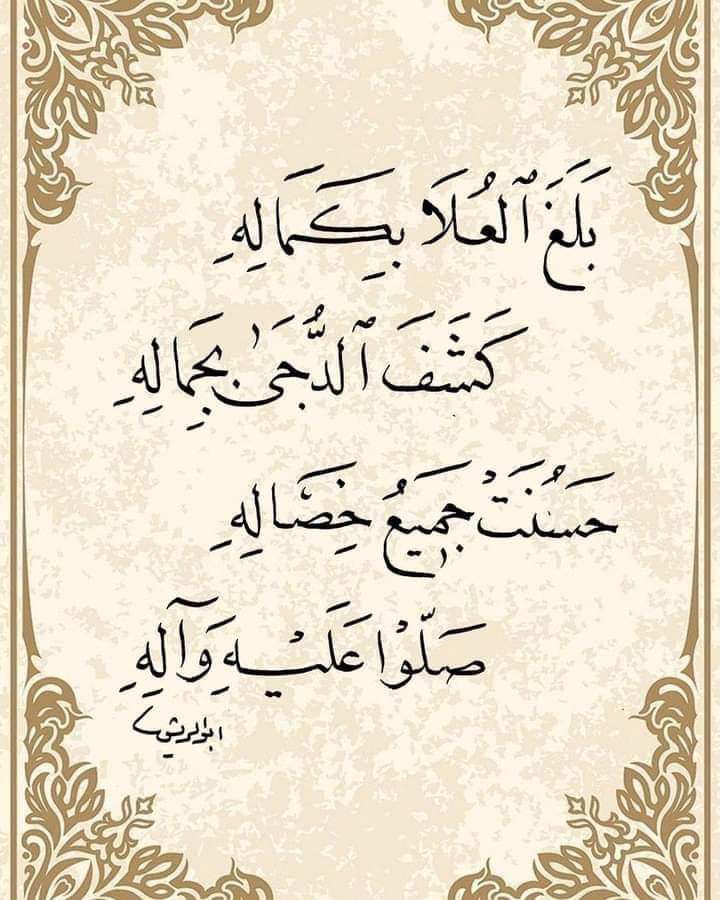 بَلَغَ ٱلعُلَا بِكَمَالِهِ
كَشَفَ ٱلدُّجَىٰ بِجَمَالِهِ
حَسُنَتْ جَمِيعُ خِصَالِهِ
صَلّوْا عَلَيْهِ وَآلِهِ